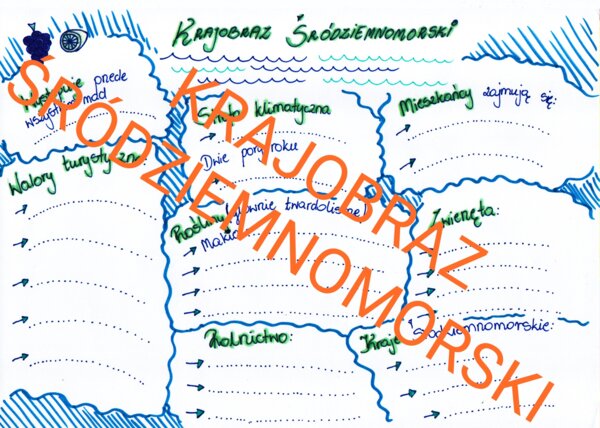 KRAJOBRAZ ŚRÓDZIEMNOMORSKI
Występuje przede
wszystkim nad
Strefa klimatyczna
Dwie pory roku
Mieszkańcy zajmują się:
Walory turystyczne
Rośliny (głównie twardolistne)
Makia
Zwierzęta:
Rolnictwo:
Kraje śródziemnomorskie:
KRAJOBRAZ
ŚRÓDZIEMNOMORSKI